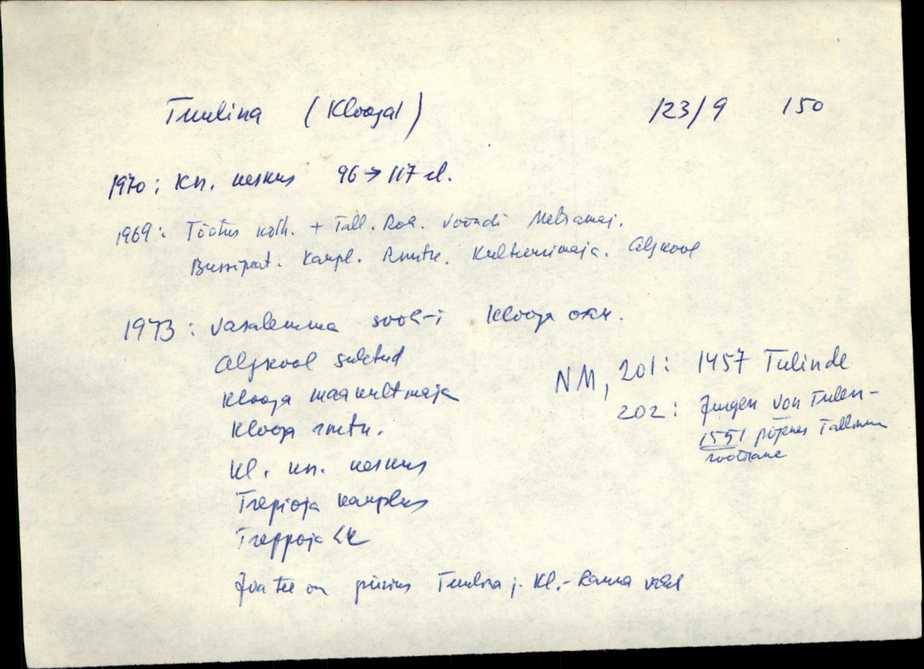 Tuulina (Kloogal) 123/9 150
1970: kn. keskus 96 → 117 el.
1969: Töötus kolh. + Tall. Raj. Voondi Metsamaj.
Bussipeat. Kaupl. Rmtk. Kultuurimaja. Algkool
1973: Vasalemma sooh-i Klooga osk.
Algkool suletud
Klooga maakultmaja
Klooga rmtk.
Kl. kn. keskus
Treppoja kauplus
Treppoja
Joa tee on piiriks Tuulna j. Kl.-Ranna vahel
NM, 201: 1457 Tulinde
202: Jurgen von Tulen-
1551 põgenes Tallinna
rootslane